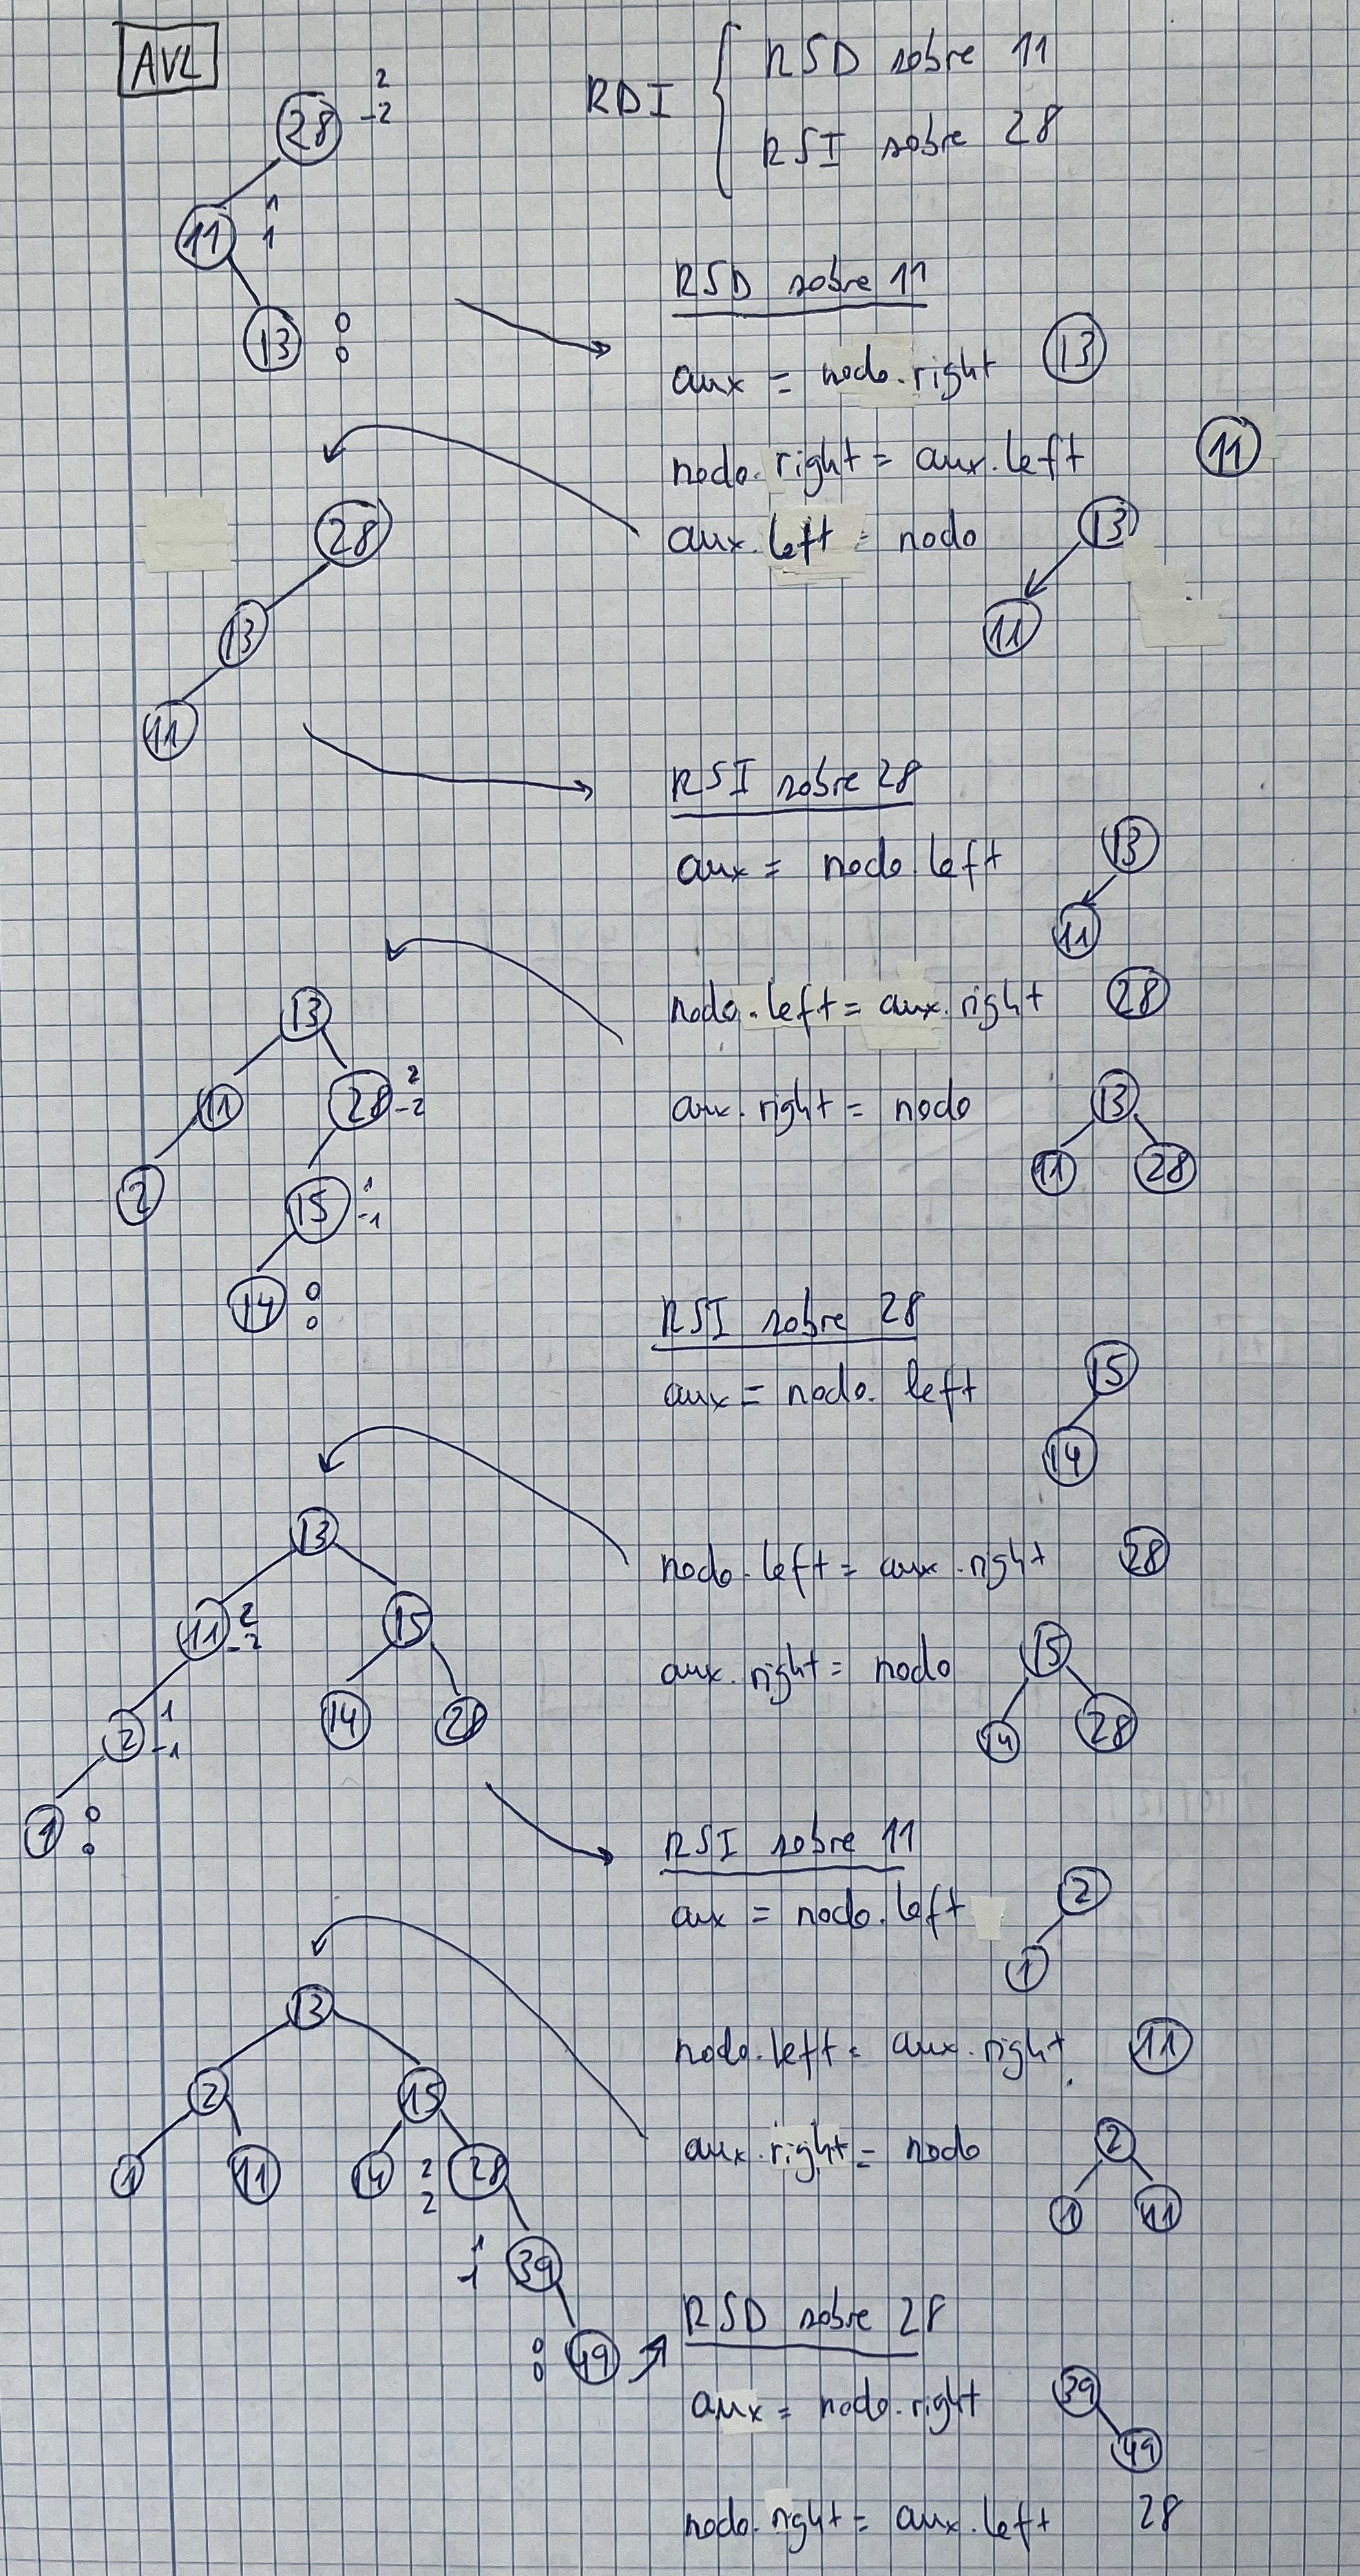 AVL
2
28 -2
RDI { RSD sobre 11
RSI sobre 28
11 1
1
13 0
0
RSD sobre 11
aux = nodo.right 13
nodo.right = aux.left 11
aux.left = nodo 13
11
28
13
11
RSI sobre 28
aux = nodo.left 13
11
nodo.left = aux.right 28
aux.right = nodo 13
11 28
13
11 28 2
-2
2 15 1
-1
14 0
0
RSI sobre 28
aux = nodo.left 15
14
nodo.left = aux.right 28
aux.right = nodo 15
14 28
13
11 2
-2 15
2 1
-1 14 28
1 0
0
RSI sobre 11
aux = nodo.left 2
1
nodo.left = aux.right 11
aux.right = nodo 2
1 11
13
2 15
1 11 14 2
2 28
1
1 39
0
0 49
RSD sobre 28
aux = nodo.right 39
49
nodo.right = aux.left 28